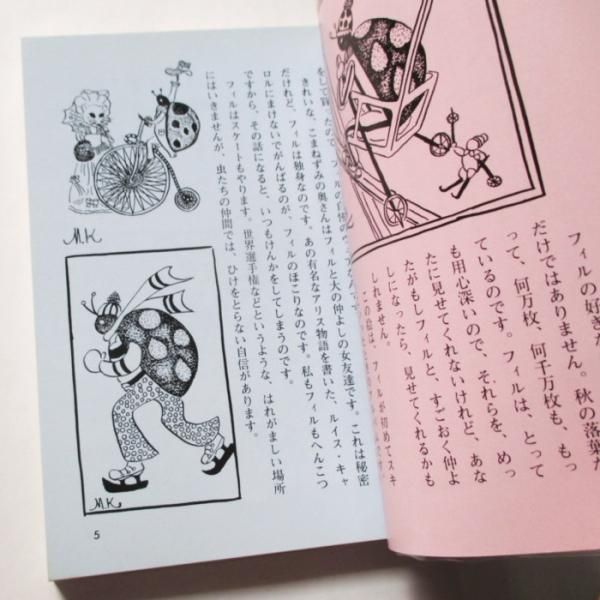 フィルの好き
だけではありません。秋の落葉
って、何万枚、何千万枚も、もっ
ているのです。フィルは、とって
も用心深いので、それらを、めっ
たに見せてくれないけれど、あな
たがもしフィルと、すごおく仲よ
しになったら、見せてくれるかも
しれません。
この絵は、フィルが初めてスキ
きれいな、こまねずみの奥さんはフィルと大の仲よしの女友達です。これは秘密
だけれど、フィルは独身なのです。あの有名なアリス物語を書いた、ルイス・キャ
ロルにまけないでがんばるのが、フィルのほこりなのです。私もフィルもへんこつ
ですから、その話になると、いつもけんかをしてしまうのです。
フィルはスケートもやります。世界選手権などというような、はれがましい場所
にはいきませんが、虫たちの仲間では、ひけをとらない自信があります。
M.K
M.K
5